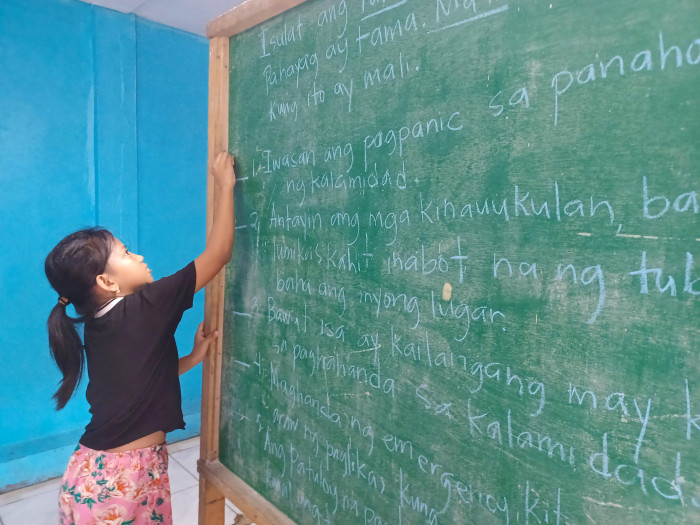 Isulat ang
Pahayag ay tama.
kung ito ay mali.
1. Iwasan ang pagpanic sa panaho
ng kalamidad.
2. Antayin ang mga kinauukulan, ba
lumikas kahit inabot na ng tub
baha ang inyong lugar.
3. Bawat isa ay kailangang may k
sa paghahanda sa kalamidad
4. Maghanda ng emergency kit
araw ng paglikas kung
5. Ang patuloy na